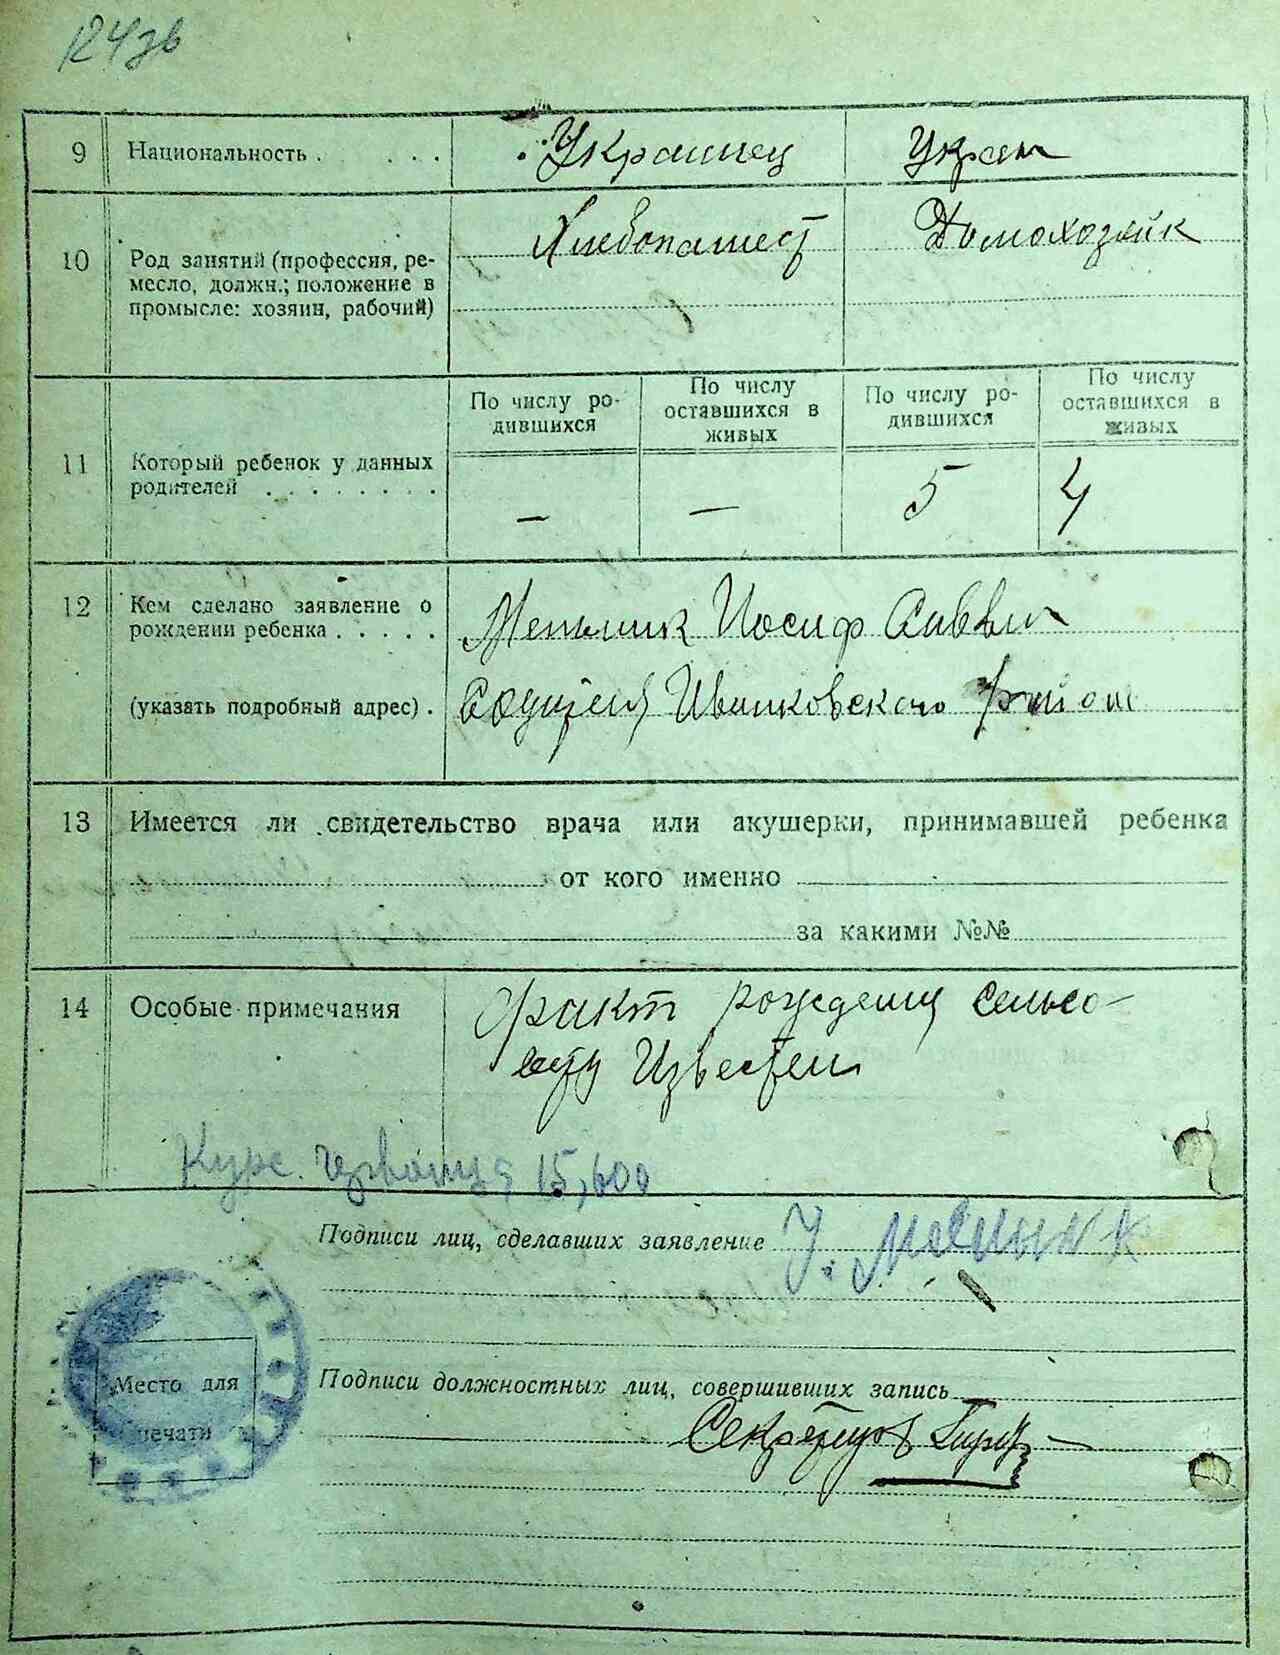 124зв
9 Национальность . . . . Украинец Украин
10 Род занятий (профессия, ре-
месло, должн.; положение в
промысле: хозяин, рабочий)
Хлебопашест Домохозяйк
11 Который ребенок у данных
родителей . . . . . . .
По числу ро-
дившихся
По числу
оставшихся в
живых
По числу ро-
дившихся
По числу
оставшихся в
живых
— — 5 4
12 Кем сделано заявление о
рождении ребенка . . . . .
(указать подробный адрес) .
Мельник Иосиф Савви
Иванковского района
13 Имеется ли свидетельство врача или акушерки, принимавшей ребенка
от кого именно
за какими №№
14 Особые примечания
Факт рождения сельсо-
вету Известен
Курс. червонца 15,600
Подписи лиц, сделавших заявление
Подписи должностных лиц, совершивших запись
Место для
печати